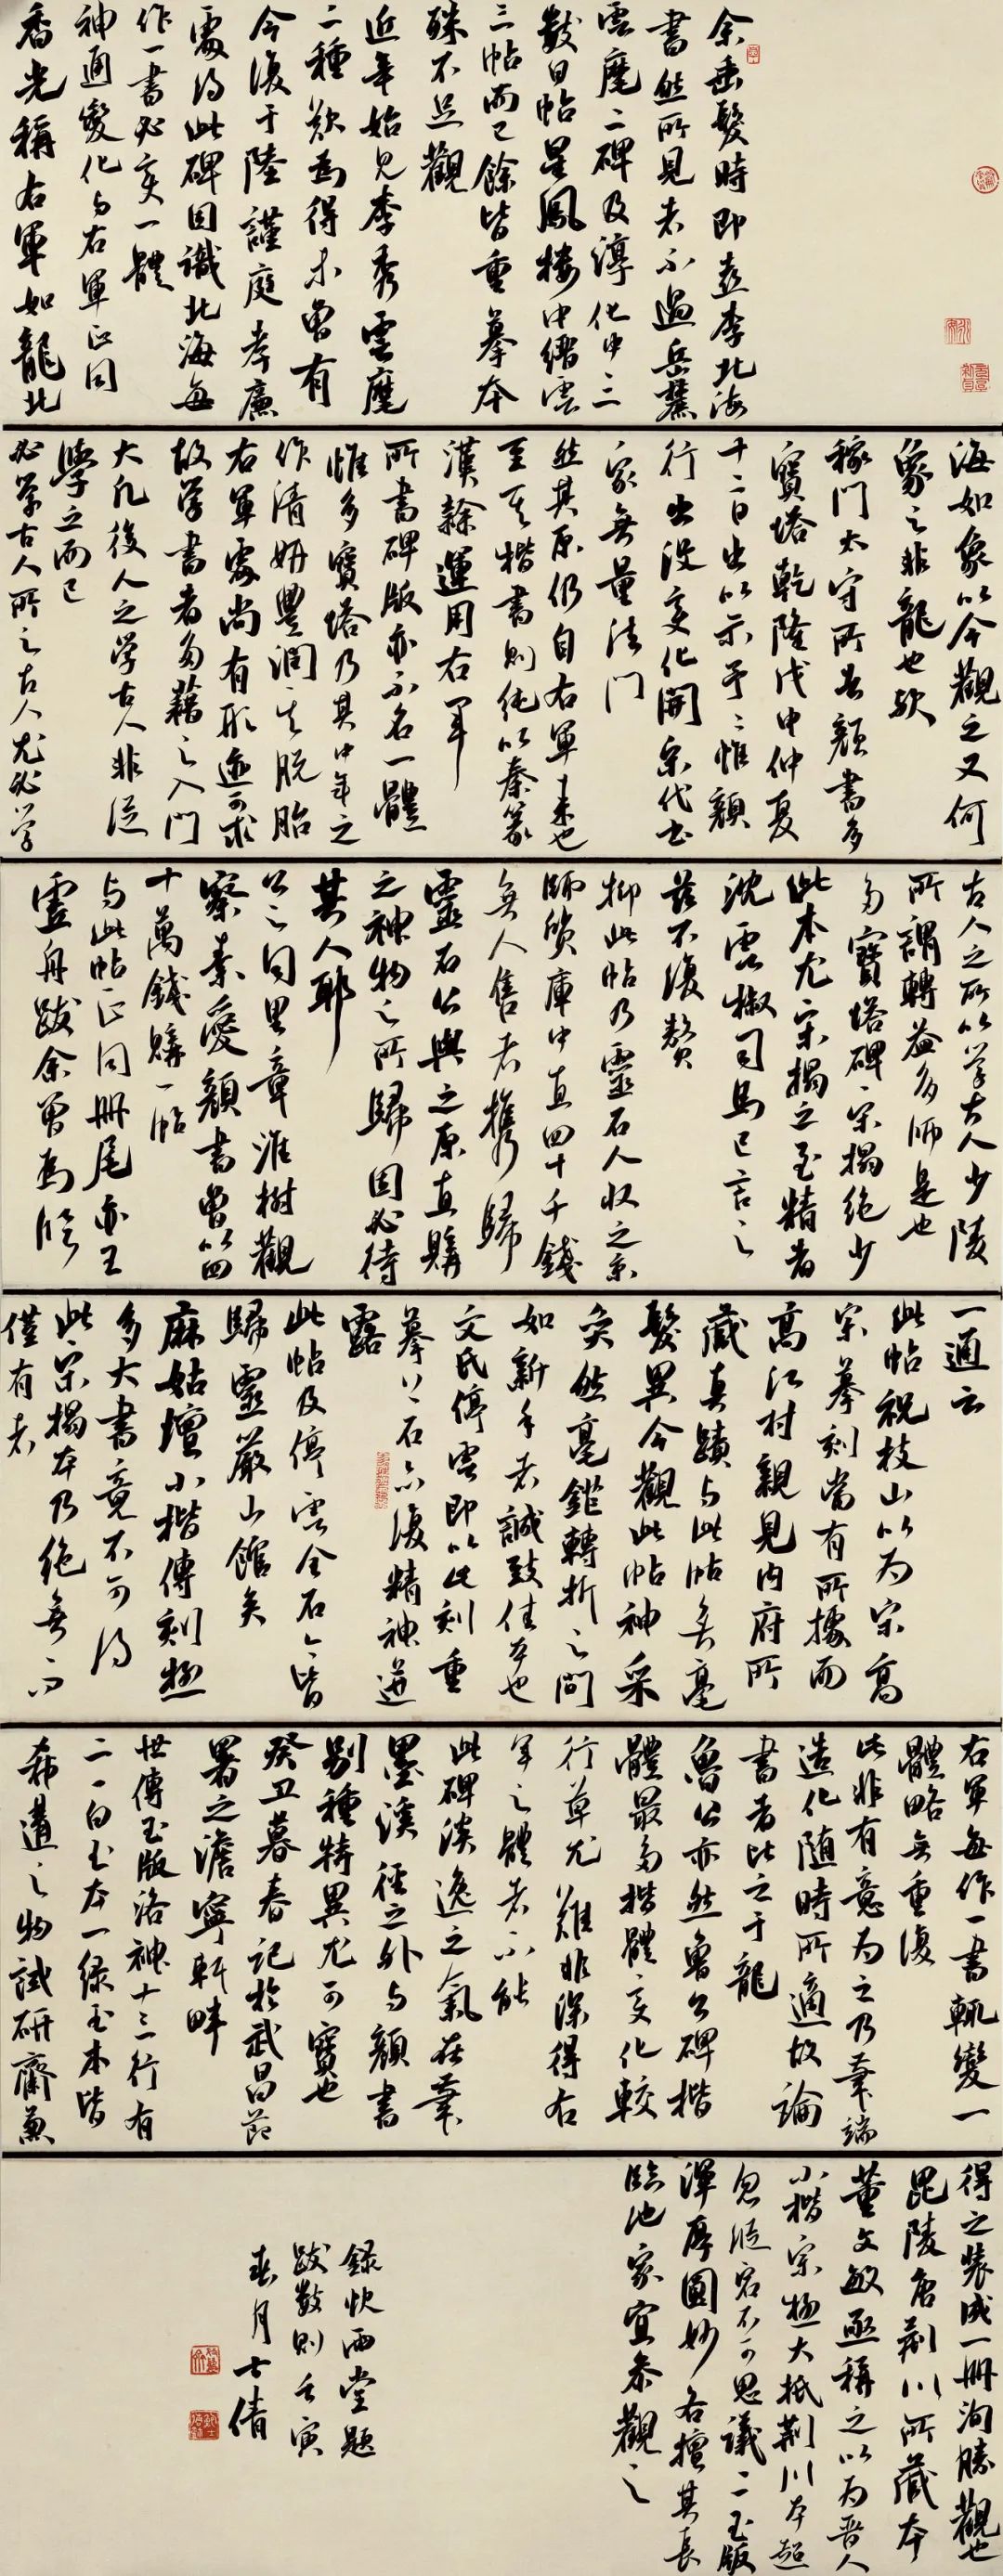 余垂髮時即喜李北海
書然所見者不過岳麓
雲麾二碑及淳化中三
數日帖星鳳樓中縉雲
三帖而已餘皆重摹本
殊不足觀
近年始見李秀雲麾
二種歎為得未曾有
今復于陸謹庭孝廉
處得此碑因識北海每
作一書必變一體
神通變化與右軍正同
香光稱右軍如龍北
海如象以今觀之又何
象之非龍也歟
稼門太守所書顏書多
寶塔乾隆戊申仲夏
十二日出以示予予惟顏
行出沒變化開宋代書
家無量法門
然其原仍自右軍來也
至其楷書則純以秦篆
漢隸運用右軍
所書碑版亦不名一體
惟多寶塔乃其中年之
作清妍豐潤其脫胎
右軍處尚有形迹可求
故學書者多藉之入門
大凡後人之學古人非從
學之而已
必學古人所之古人尤必學
古人之所以學古人少陵
所謂轉益多師是也
多寶塔碑宋搨絕少
此本尤宋搨之至精者
沈雲椒司馬已言之
茲不復贅
抑此帖乃靈石人收之京
師質庫中直四十千錢
無人售者攜歸
靈石公與之原直購
之神物之所歸固必待
其人耶
公之同里章淮樹觀
察素愛顏書曾以四
十萬錢購一帖
與此帖正同冊尾亦王
虛舟跋余曾為臨
一通云
此帖祝枝山以為宋高
宗摹刻當有所據而
高江村親見內府所
藏真蹟與此帖無毫
髮異今觀此帖神采
奕然毫鋩轉折之間
如新手者誠致佳本也
文氏停雲即以此刻重
摹上石亦復精神迸
露
此帖及停雲全石今皆
歸靈巖山館矣
麻姑壇小楷傳刻極
多大書竟不可得
此宋搨本乃絕無而
僅有者
右軍每作一書輒變一
體略無重復
此非有意為之乃筆端
造化隨時所適故論
書者比之于龍
魯公亦然魯公碑楷
體最多楷體變化較
行草尤難非深得右
軍之體者不能
此碑淡逸之氣在筆
墨溪徑之外與顏書
別種特異尤可寶也
癸丑暮春記於武昌節
署之澹寧軒畔
世傳玉版洛神十三行有
二一白玉本一綠玉本皆
希遘之物試研齋兼
得之裝成一冊洵勝觀也
毘陵唐荊川所藏本
董文敏亟稱之以為晉人
小楷宗極大抵荊川本超
忽縱宕不可思議二玉版
渾厚圓妙各擅其長
臨池家宜參觀之
錄快雨堂題
跋數則壬寅
春月士倩